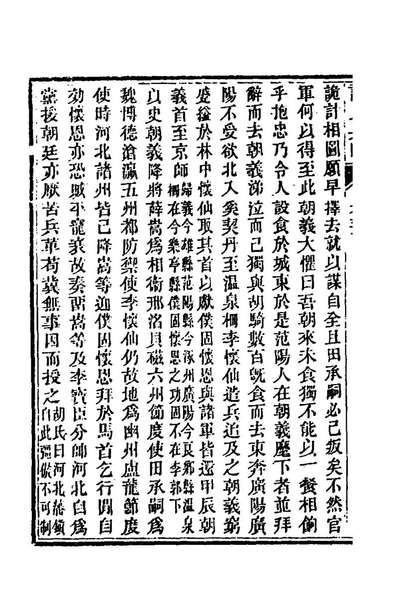 詭計相圖願早擇去就以謀自全且田承嗣必已叛矣不然官
軍何以得至此朝義大懼曰吾朝來未食獨不能以一餐相餉
乎抱忠乃令人設食於城東於是范陽人在朝義麾下者並拜
辭而去朝義涕泣而已獨與胡騎數百旣食而去東奔廣陽廣
陽不受欲北入奚契丹至溫泉柵李懷仙遣兵追及之朝義窮
蹙縊於林中懷仙取其首以獻僕固懷恩與諸軍皆還甲辰朝
義首至京師歸義今雄縣范陽縣今涿州廣陽今良鄉縣溫泉
柵在今樂亭縣僕固懷恩之功固不在李郭下
以史朝義降將薛嵩爲相衞邢洺貝磁六州節度使田承嗣爲
魏博德滄瀛五州都防禦使李懷仙仍故地爲幽州盧龍節度
使時河北諸州皆已降嵩等迎僕固懷恩拜於馬首乞行間自
効懷恩亦恐賊平寵衰故奏畱嵩等及李寶臣分帥河北自爲
黨援朝廷亦厭苦兵革苟冀無事因而授之胡氏曰河北藩鎭
自此彊傲不可制